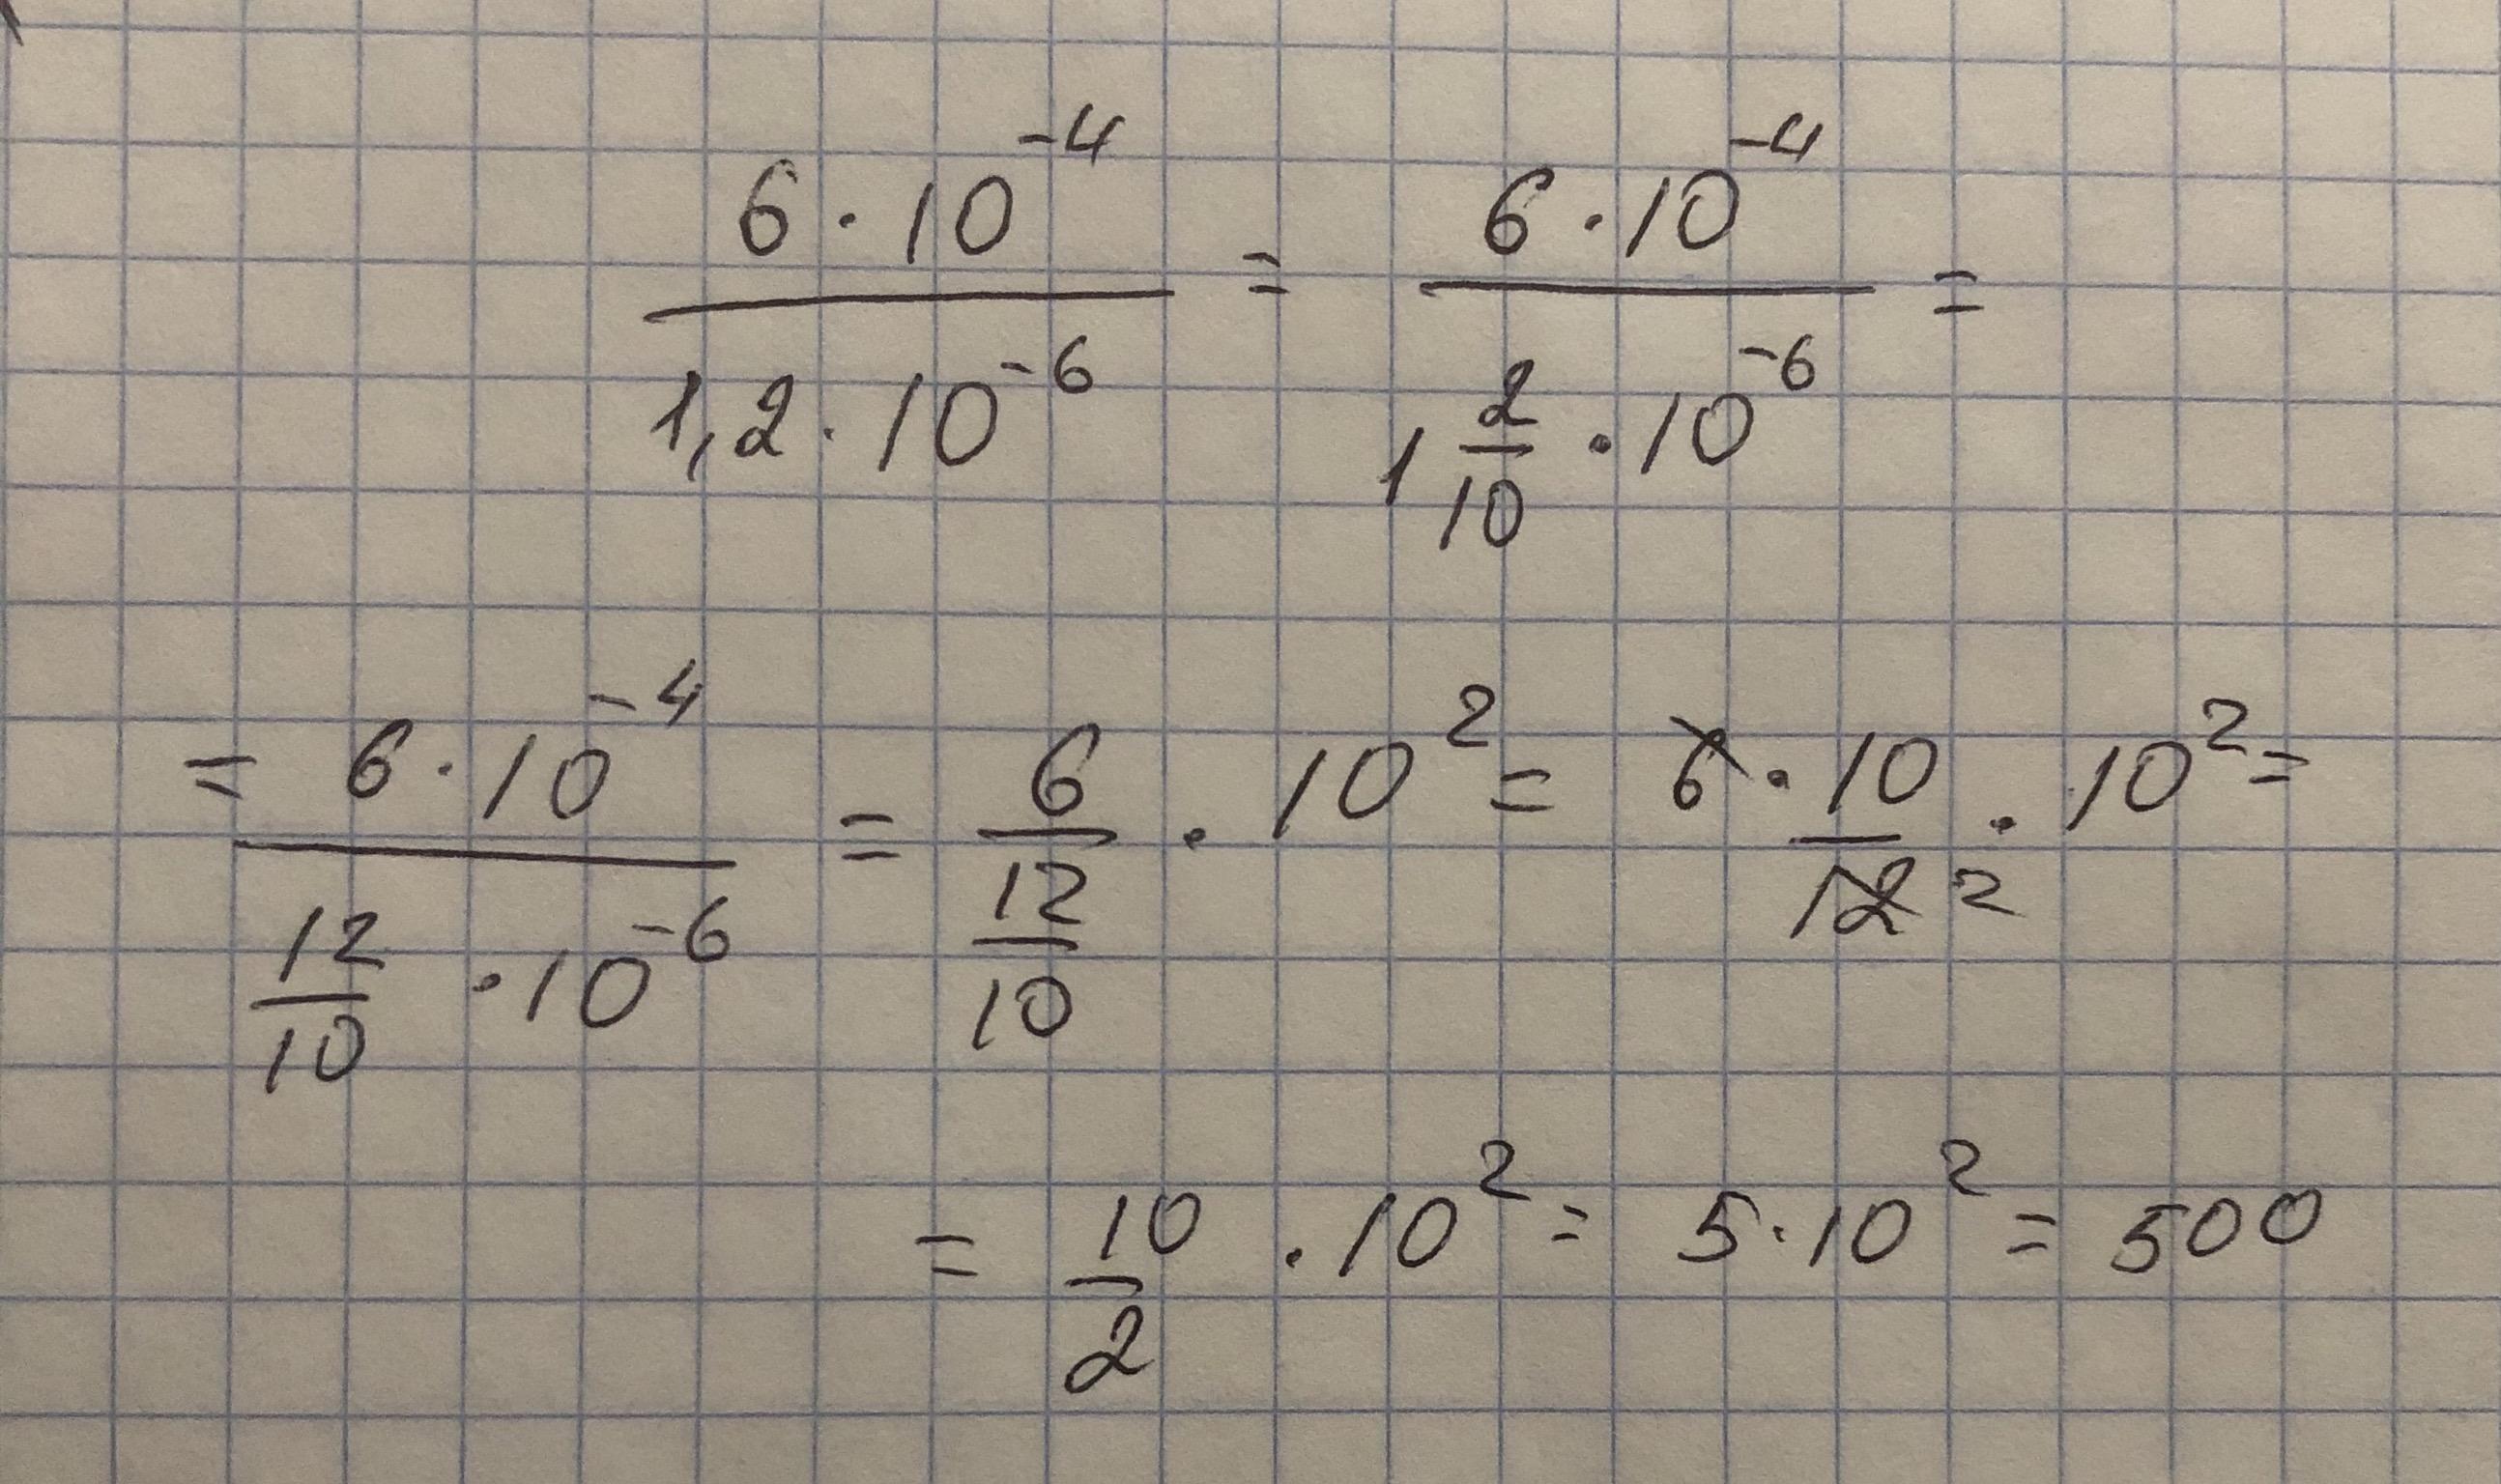 \frac{6 \cdot 10^{-4}}{1,2 \cdot 10^{-6}} = \frac{6 \cdot 10^{-4}}{1\frac{2}{10} \cdot 10^{-6}} =
= \frac{6 \cdot 10^{-4}}{\frac{12}{10} \cdot 10^{-6}} = \frac{6}{\frac{12}{10}} \cdot 10^{2} = \cancel{6} \cdot \frac{10}{\cancel{12} 2} \cdot 10^{2} =
= \frac{10}{2} \cdot 10^{2} = 5 \cdot 10^{2} = 500